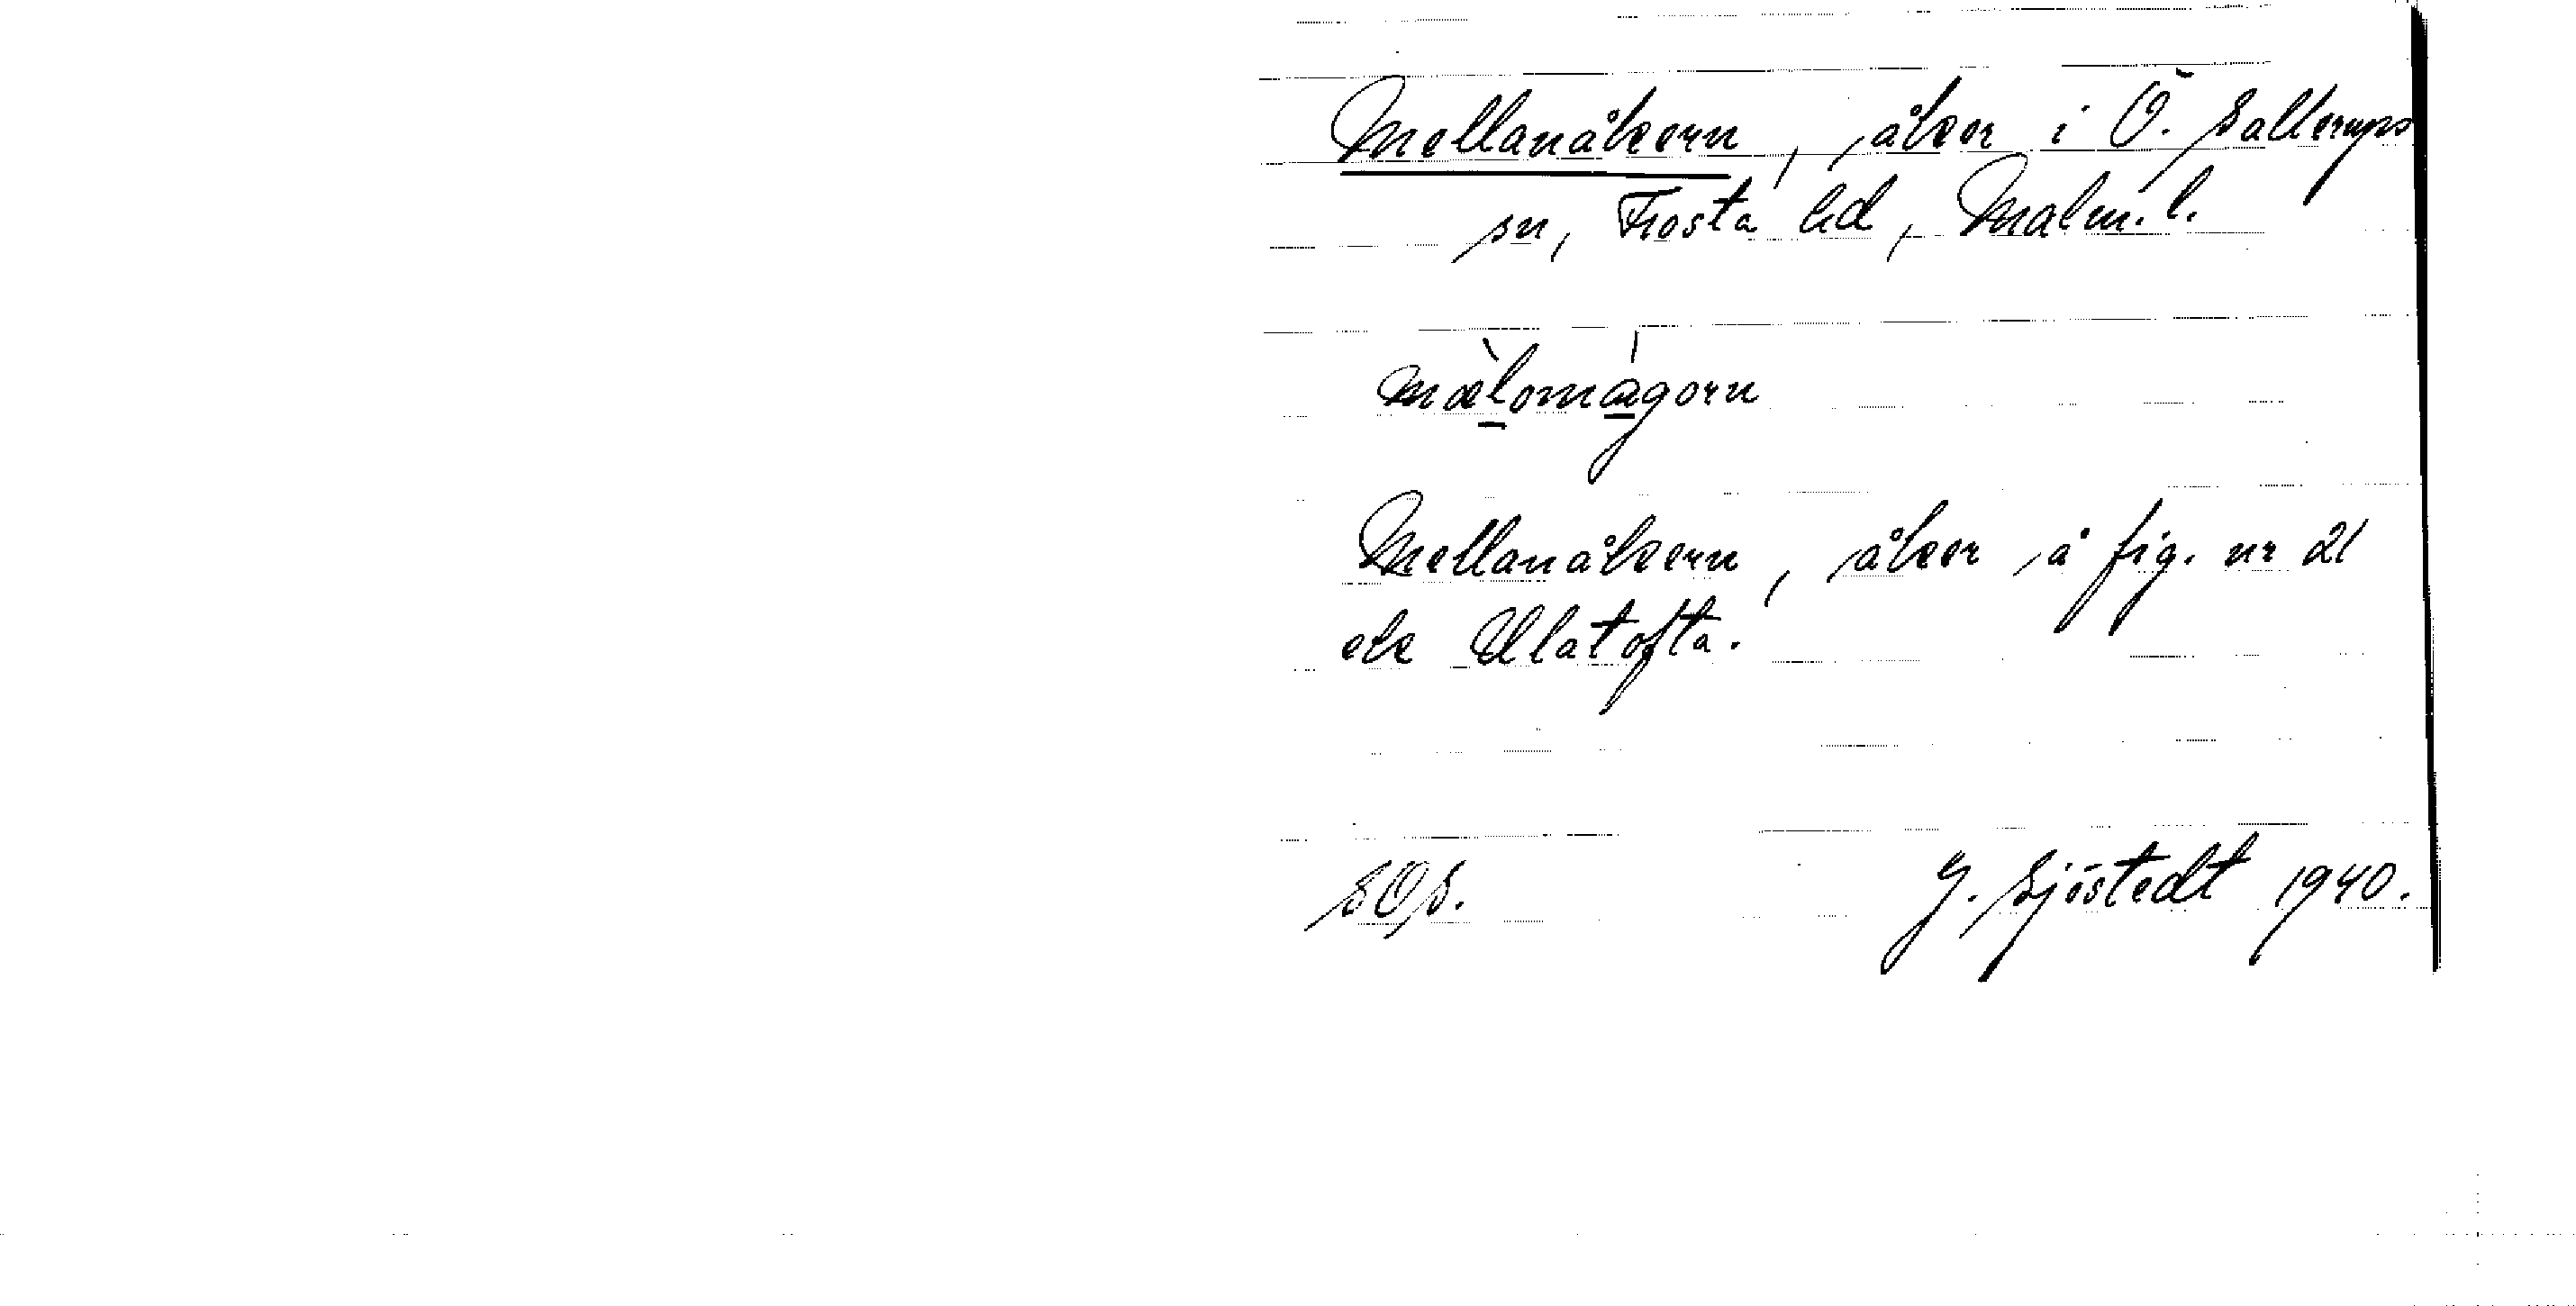 Mellanåkern, åker i Ö. Sallerups
sn, Frosta hd, Malm. l.
mæ̀lomágorn
Mellanåkern, åker å fig. nr 21
ek Ulatofta.
SOS.
G. Sjöstedt 1940.